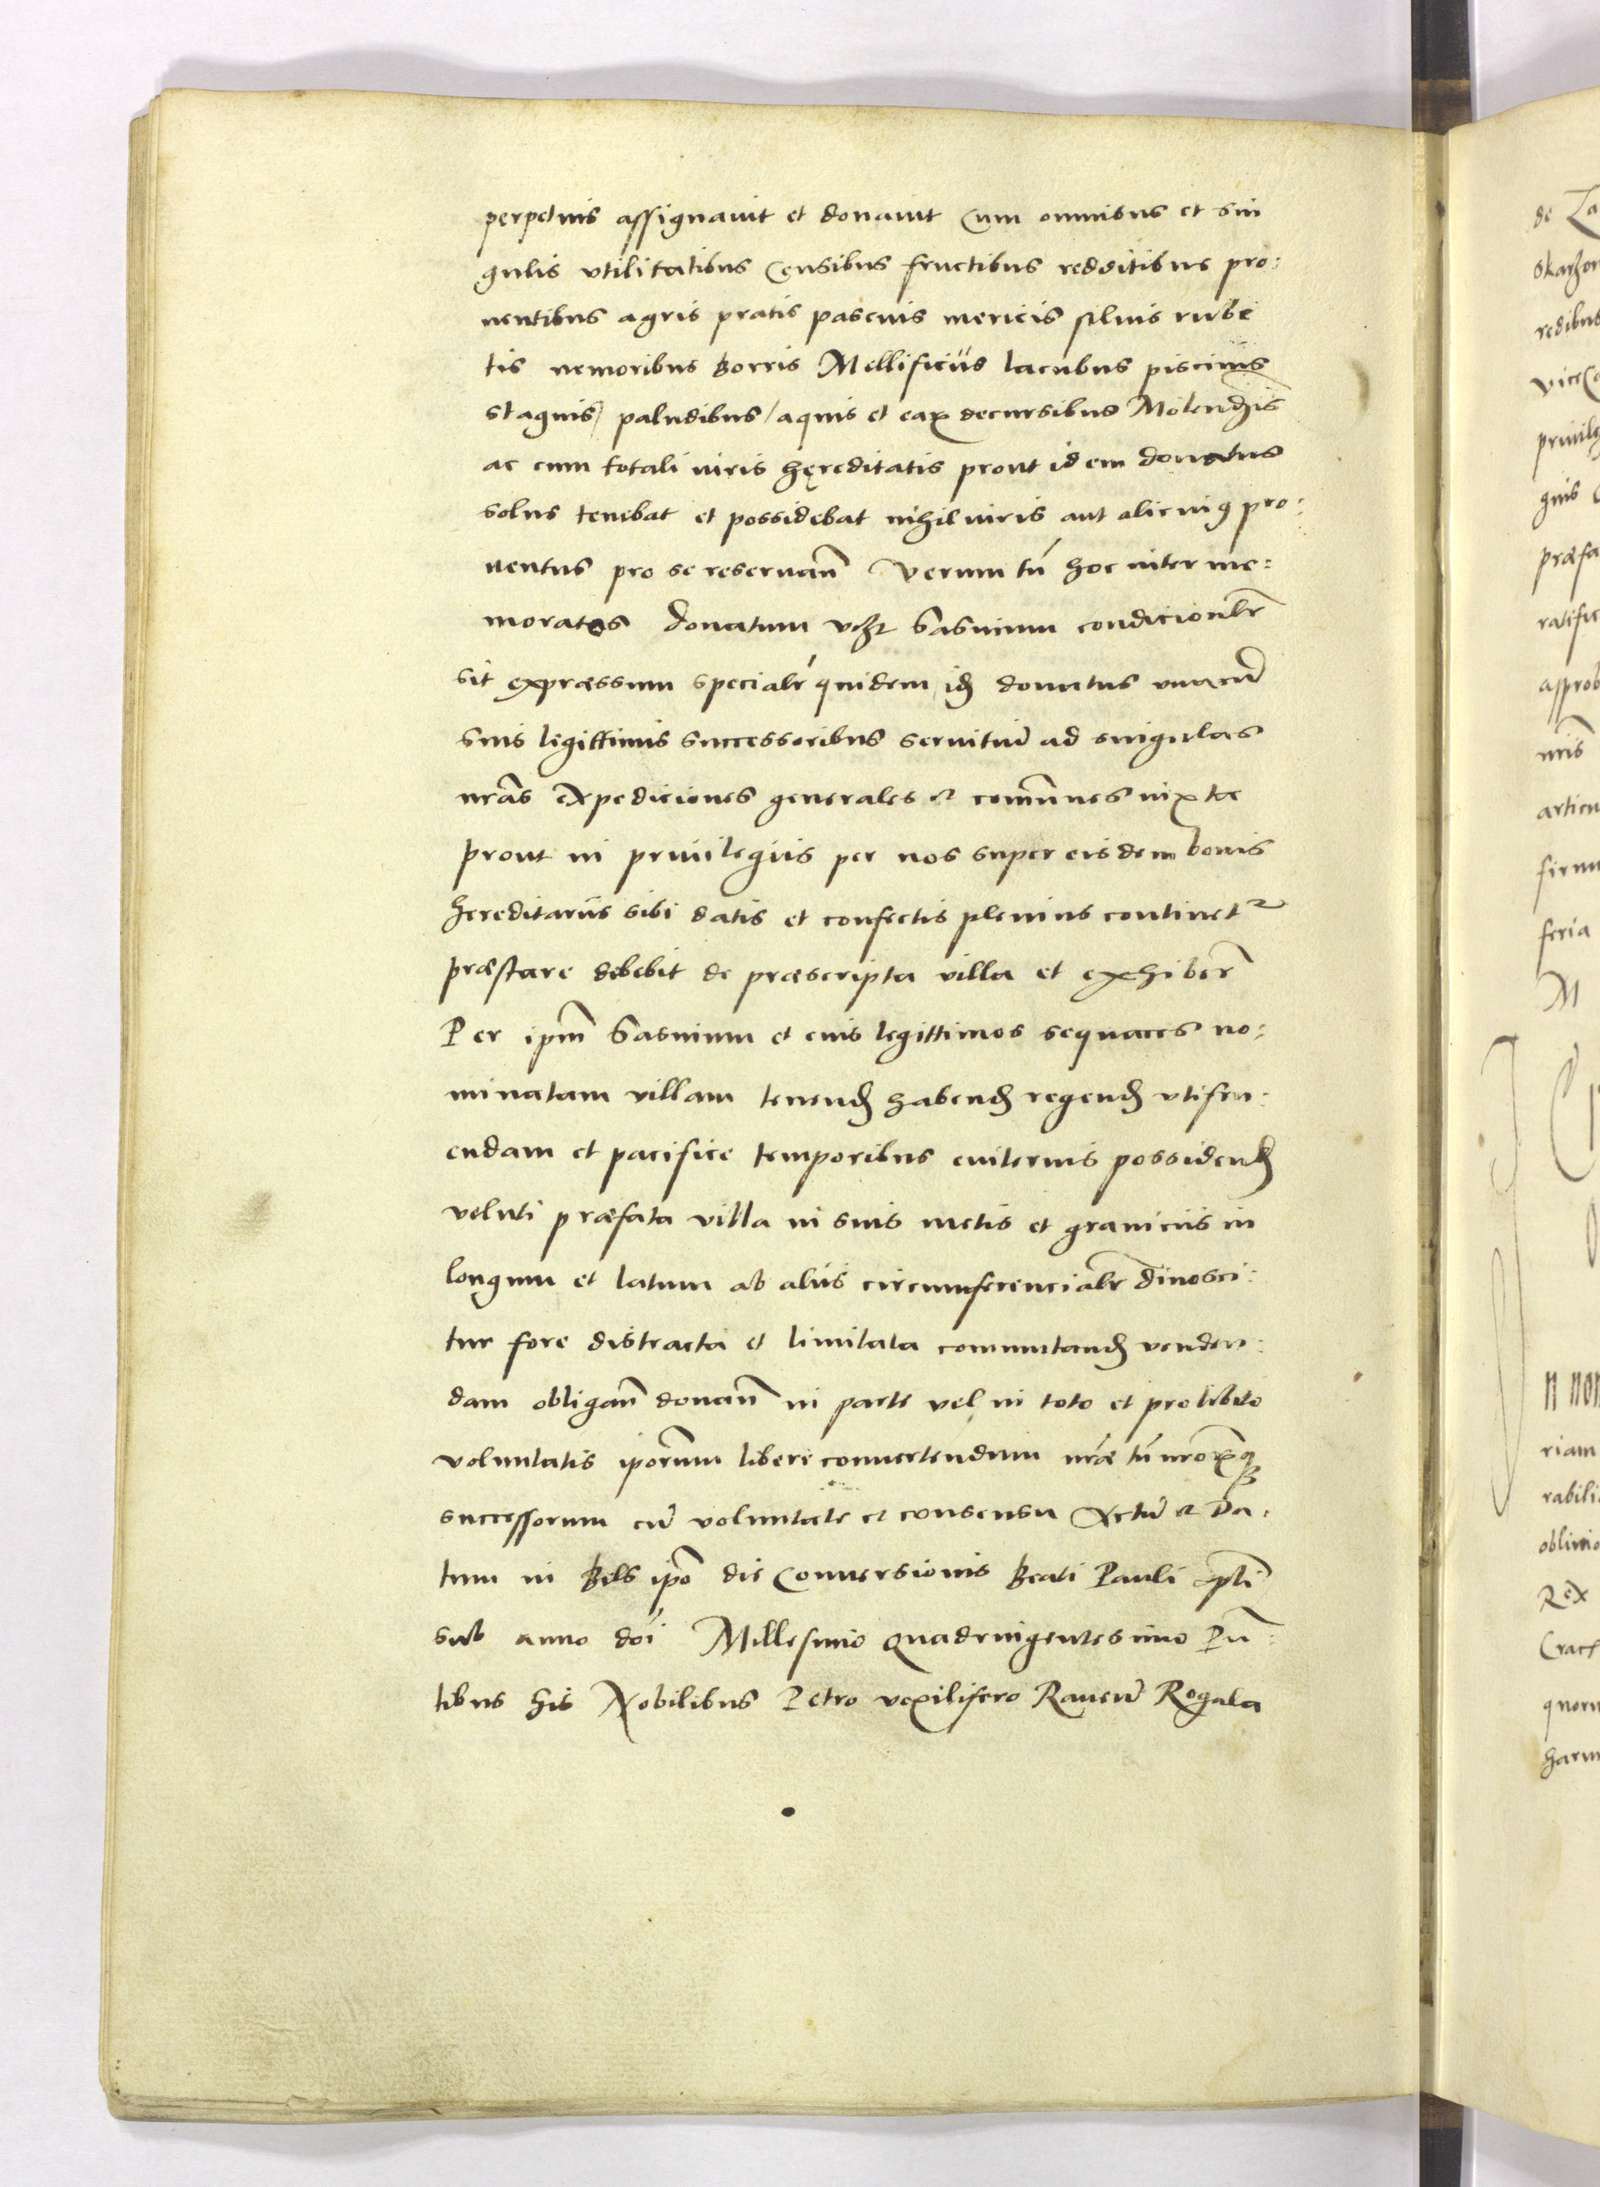 perpetuis assignavit et donavit Cum omnibus et sin
gulis vtilitatibus Censibus fructibus redditibus pro:
uentibus agris pratis pascuis mericis siluis rube
tis nemoribus Borris Mellificiis lacubus piscinis
stagnis/ paludibus/ aquis et eaꝝ decursibus Molendis
ac cum totali iuris hęreditatis prout idem donatus
solus tenebat et possidebat nihil iuris aut alicuiꝯ pro:
uentus pro se reseruan̄ Verum tn̄ hoc inter me:
moratos donatum vcꝫ Sasinum condicionlr̄
sit expræssum specialr̄ quidem idꝫ donatus vnacū
suis legittimis successoribus seruitiū ad singulas
nrās expediciones generales et com̄unes iuxta
prout in priuilegiis per nos super eisdem bonis
hereditariis sibi datis et confectis plenius continetr
præstare debebit de præscripta villa et exhiber̄
Per ipm̄ Sasinum et euis legittimos sequaces no:
minatam villam tenendꝫ habendꝫ regendꝫ vtifru:
endam et pacifice temporibus euiternis possidendꝫ
veluti præfata villa in suis metis et graniciis in
longum et latum ab aliis circumferencialr̄ dinosci:
tur fore distracta et limitata commutandꝫ venden:
dam obligan̄ donan̄ in parte vel in toto et pro libito
voluntatis ipōrum libere conuertendum nrǣ tn̄ nrōrꝝqꝫ
successorum cū voluntate et consensu Actū et Da:
tum in Bels ipō die Conuersionis Beati Pauli Apli
sub anno doi Millesimo Quadringentesimo Pn̄:
tibus his Nobilibus Petro vexilifero Rauen̄ Rogala
de Za
skarzon
redibus
vice
priuileg
guis
præfa
ratific
approb
nris
articu
firm
feria
M
n non
riam
rabili
obliuio
Rex
Crac
quoru
harum